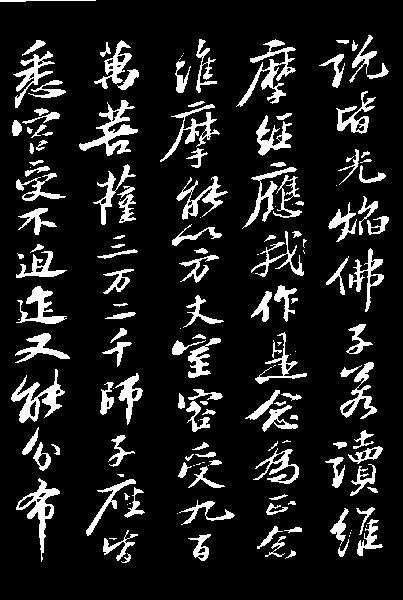 説皆光焰佛子若讀維
摩經應我作是念為正念
維摩能以方丈室容受九百
萬菩薩三万二千師子座皆
悉容受不迫迮又能分布